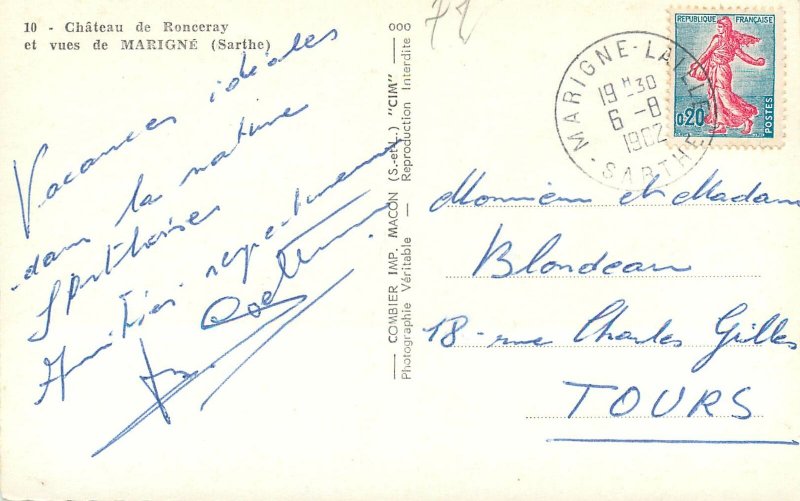 10 - Château de Ronceray
et vues de MARIGNÉ (Sarthe)
Vacances idéales
dans la nature
Amitiés respectueuses
COMBIER IMP. MACON (S.-et-L.) "CIM"
Photographie Véritable Reproduction Interdite
72
RÉPUBLIQUE FRANÇAISE
0,20
POSTES
MARIGNE-LAILLE
19 H 30
6 -8
1962
SARTHE
Monsieur et Madame
Blondeau
18 - rue Charles Gilles
TOURS